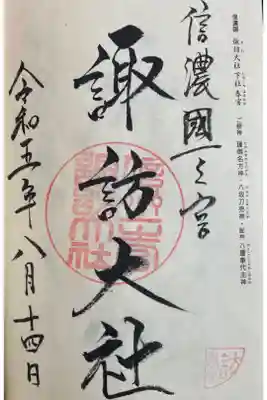 信濃國 諏訪大社 下社 春宮
ご祭神 建御名方神・八坂刀売神・配祀 八重事代主神
信濃國一之宮
諏訪大社
令和五年八月十四日